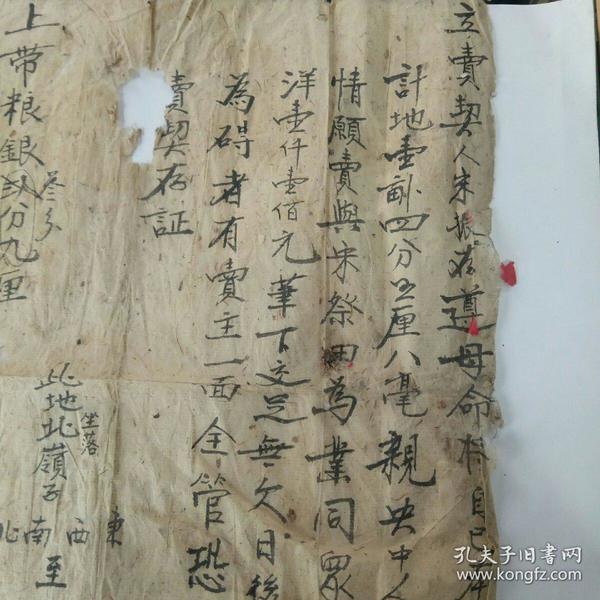 立賣契人宋振遵母命将自己
計地壹畝四分五厘八毫親央中人
情願賣與宋祭田為業同眾
洋壹仟壹佰元筆下交足無欠日後
為碍者有賣主一面全管恐
賣契存証
上帶粮銀分九厘
叁分
坐落
此地北嶺子
東西南北
至
孔夫子旧书网
www.kongfz.com